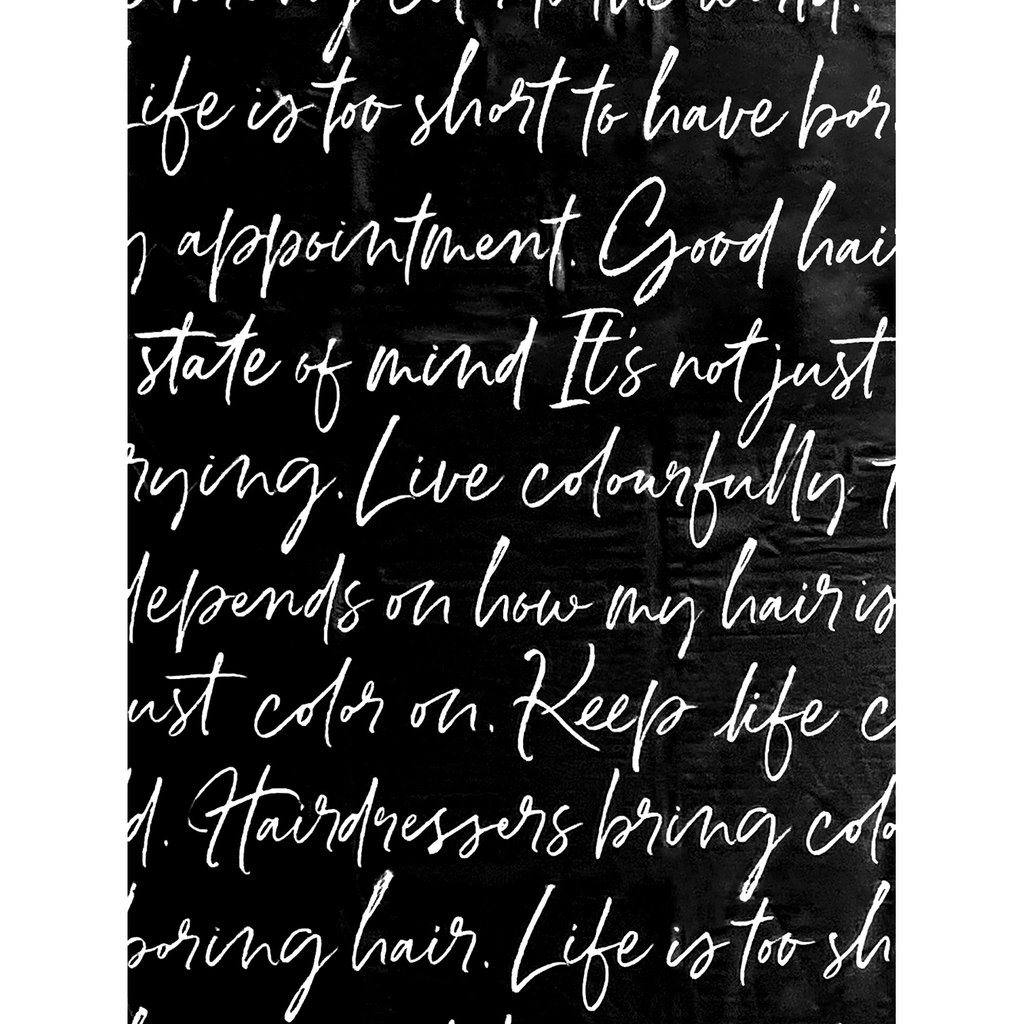 to the world.
Life is too short to have bor
y appointment. Good hai
state of mind It's not just
rying. Live colourfully
depends on how my hair is
ust color on. Keep life c
d. Hairdressers bring colo
boring hair. Life is too sh